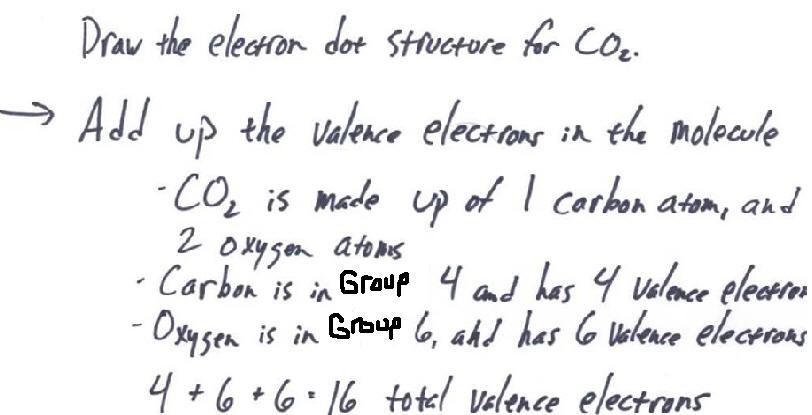 Draw the electron dot structure for CO₂.
→ Add up the valence electrons in the molecule
- CO₂ is made up of 1 carbon atom, and
2 oxygen atoms
- Carbon is in Group 4 and has 4 valence electron
- Oxygen is in Group 6, and has 6 valence electrons
4 + 6 + 6 = 16 total valence electrons